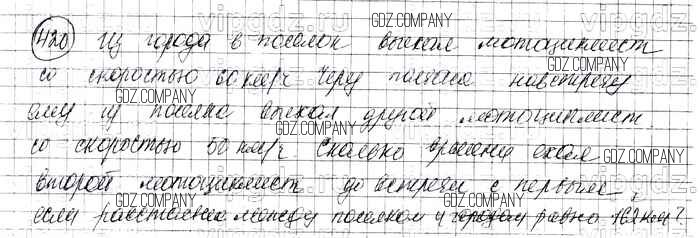 420 Из города в поселок выехал мотоциклист
со скоростью 60 км/ч Через полчаса навстречу
ему из поселка выехал другой мотоциклист
со скоростью 50 км/ч Сколько времени ехал
второй мотоциклист до встречи с первым,
если расстояние между поселком и городом равно км?
GDZ.COMPANY
GDZ.COMPANY
GDZ.COMPANY
GDZ.COMPANY
GDZ.COMPANY
GDZ.COMPANY
GDZ.COMPANY
GDZ.COMPANY
GDZ.COMPANY